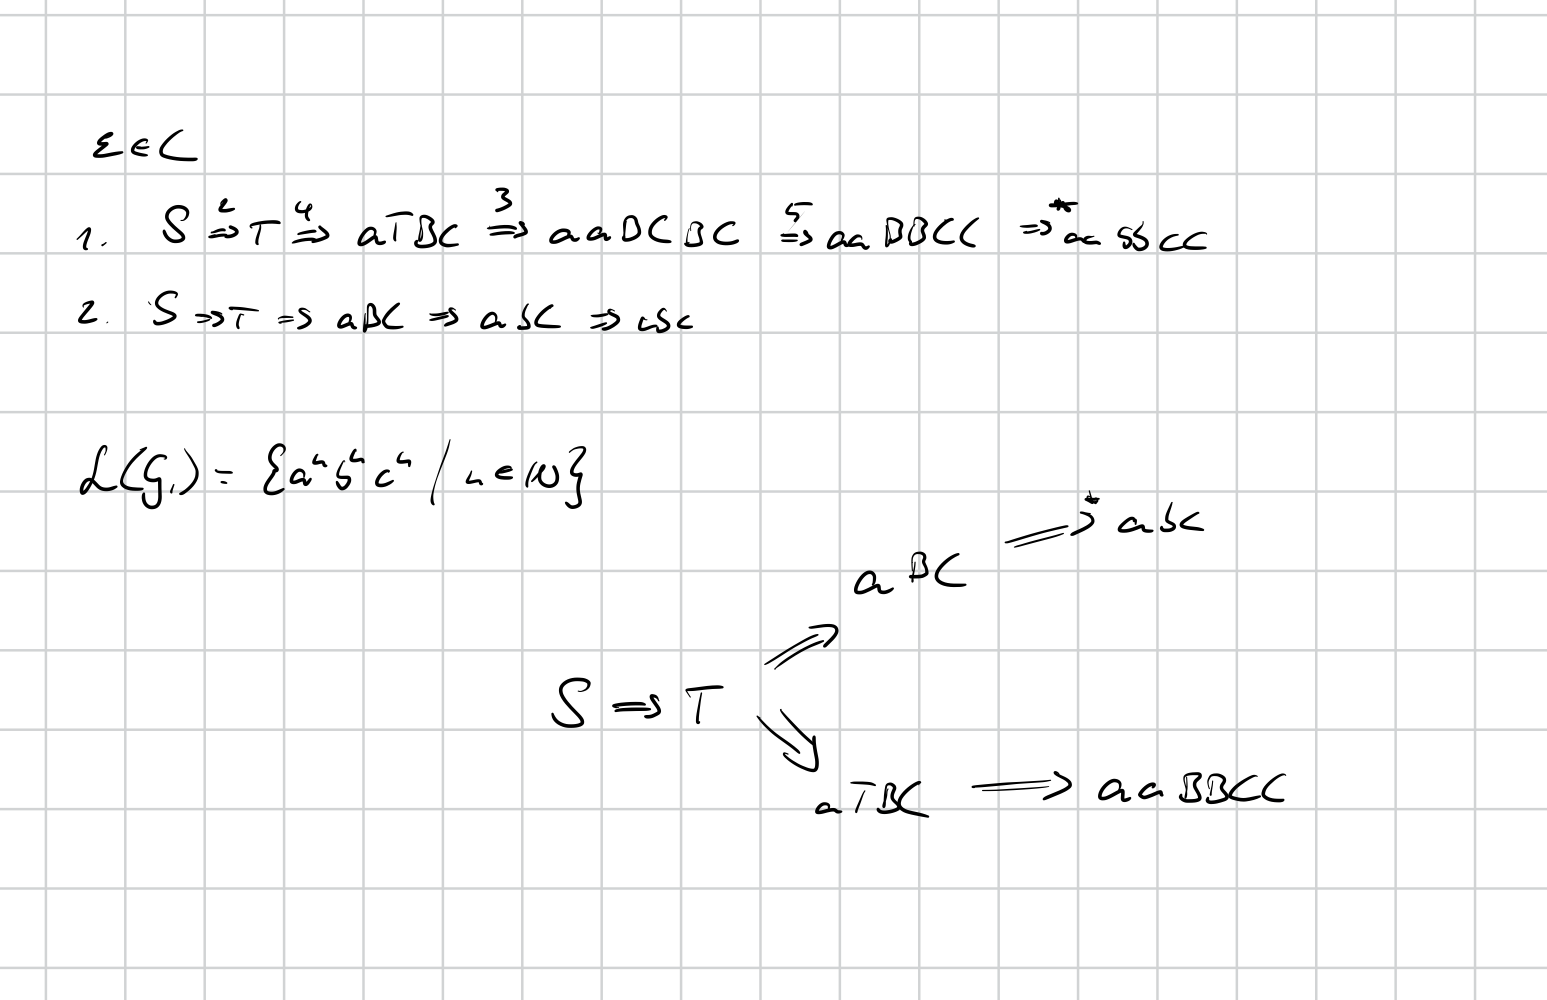 ε ∈ L
1. S ²⇒ T ⁴⇒ aTBC ³⇒ aaBCBC ⁵⇒ aaBBCC ⇒* aabbcc
2. S ⇒ T ⇒ aBC ⇒ abC ⇒ abc
L(G₁) = {aⁿbⁿcⁿ / n ∈ ℕ}
⇒* abc
aBC
S ⇒ T
aTBC ⇒ aaBBCC